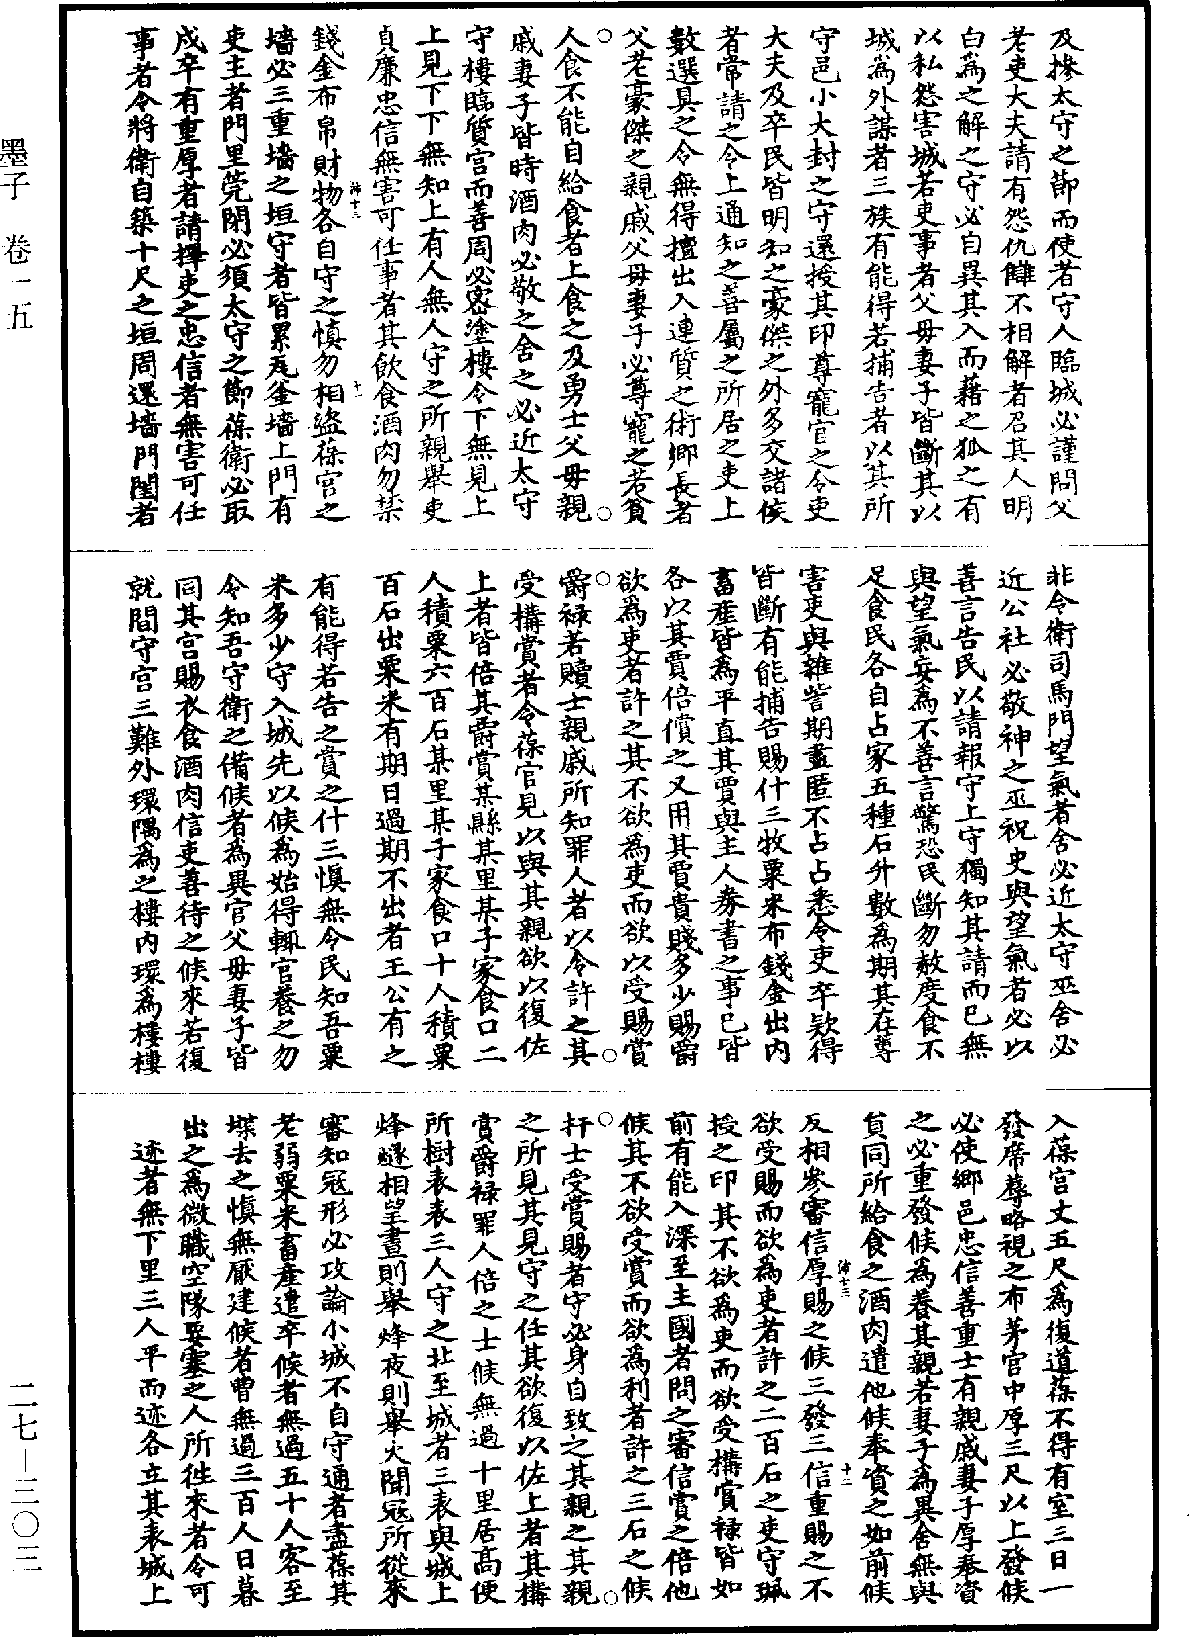 及摻太守之節而使者守人臨城必謹問父
老吏大夫請有怨仇讎不相解者召其人明
白為之解之守必自異其人而藉之孤之有
以私怨害城若吏事者父母妻子皆斷其以
城為外謀者三族有能得若捕告者以其所
守邑小大封之守還授其印尊寵官之令吏
大夫及卒民皆明知之豪傑之外多交諸侯
者常請之令上通知之善屬之所居之吏上
數選具之令無得擅出入連質之術鄉長者
父老豪傑之親戚父母妻子必尊寵之若貧
人食不能自給食者上食之及勇士父母親
戚妻子皆時酒肉必敬之舍之必近太守
守樓臨質宮而善周必密塗樓令下無見上
上見下下無知上有人無人守之所親舉吏
貞廉忠信無害可任事者其飲食酒肉勿禁
錢金布帛財物各自守之慎勿相盜葆宮之
墻必三重墻之垣守者皆累瓦釜墻上門有
吏主者門里筦閉必須太守之節葆衛必取
戍卒有重厚者請擇吏之忠信者無害可任
事者令將衛自築十尺之垣周還墻門閨者
非令衛司馬門望氣者舍必近太守巫舍必
近公社必敬神之巫祝史與望氣者必以
善言告民以請報守上守獨知其請而已無
與望氣妄為不善言驚恐民斷勿赦度食不
足食民各自占家五種石升數為期其在蓴
害吏與雜訾期盡匿不占占悉令吏卒款得
皆斷有能捕告賜什三牧粟米布錢金出內
畜產皆為平直其賈與主人券書之事已皆
各以其賈倍償之又用其賈貴賤多少賜爵
欲為吏者許之其不欲為吏而欲以受賜賞
爵祿若贖士親戚所知罪人者以令許之其
受構賞者令葆宮見以與其親欲以復佐
上者皆倍其爵賞某縣某里某子家食口二
人積粟六百石某里某子家食口十人積粟
百石出粟米有期日過期不出者王公有之
有能得若告之賞之什三慎無令民知吾粟
米多少守入城先以候為始得輒宮養之勿
令知吾守衛之備候者為異宮父母妻子皆
同其宮賜衣食酒肉信吏善待之候來若復
就間守宮三難外環隅為之樓內環為樓樓
入葆宮丈五尺為復道葆不得有室三日一
發席蓐略視之布茅宮中厚三尺以上發候
必使鄉邑忠信善重士有親戚妻子厚奉資
之必重發候為養其親若妻子為異舍無與
員同所給食之酒肉遣他候奉資之如前候
反相參審信厚賜之候三發三信重賜之不
欲受賜而欲為吏者許之二百石之吏守珮
授之印其不欲為吏而欲受構賞祿皆如
前有能入深至主國者問之審信賞之倍他
候其不欲受賞而欲為利者許之三石之候
扞士受賞賜者守必身自致之其親之其親
之所見其見守之任其欲復以佐上者其構
賞爵祿罪人倍之士候無過十里居高便
所樹表表三人守之比至城者三表與城上
烽燧相望晝則舉烽夜則舉火聞寇所從來
審知寇形必攻論小城不自守通者盡葆其
老弱粟米畜產遣卒候者無過五十人客至
堞去之慎無厭建候者曹無過三百人日暮
出之為微職空隊要塞之人所往來者令可
迹者無下里三人平而迹各立其表城上
墨子 卷一五
二七-三〇三